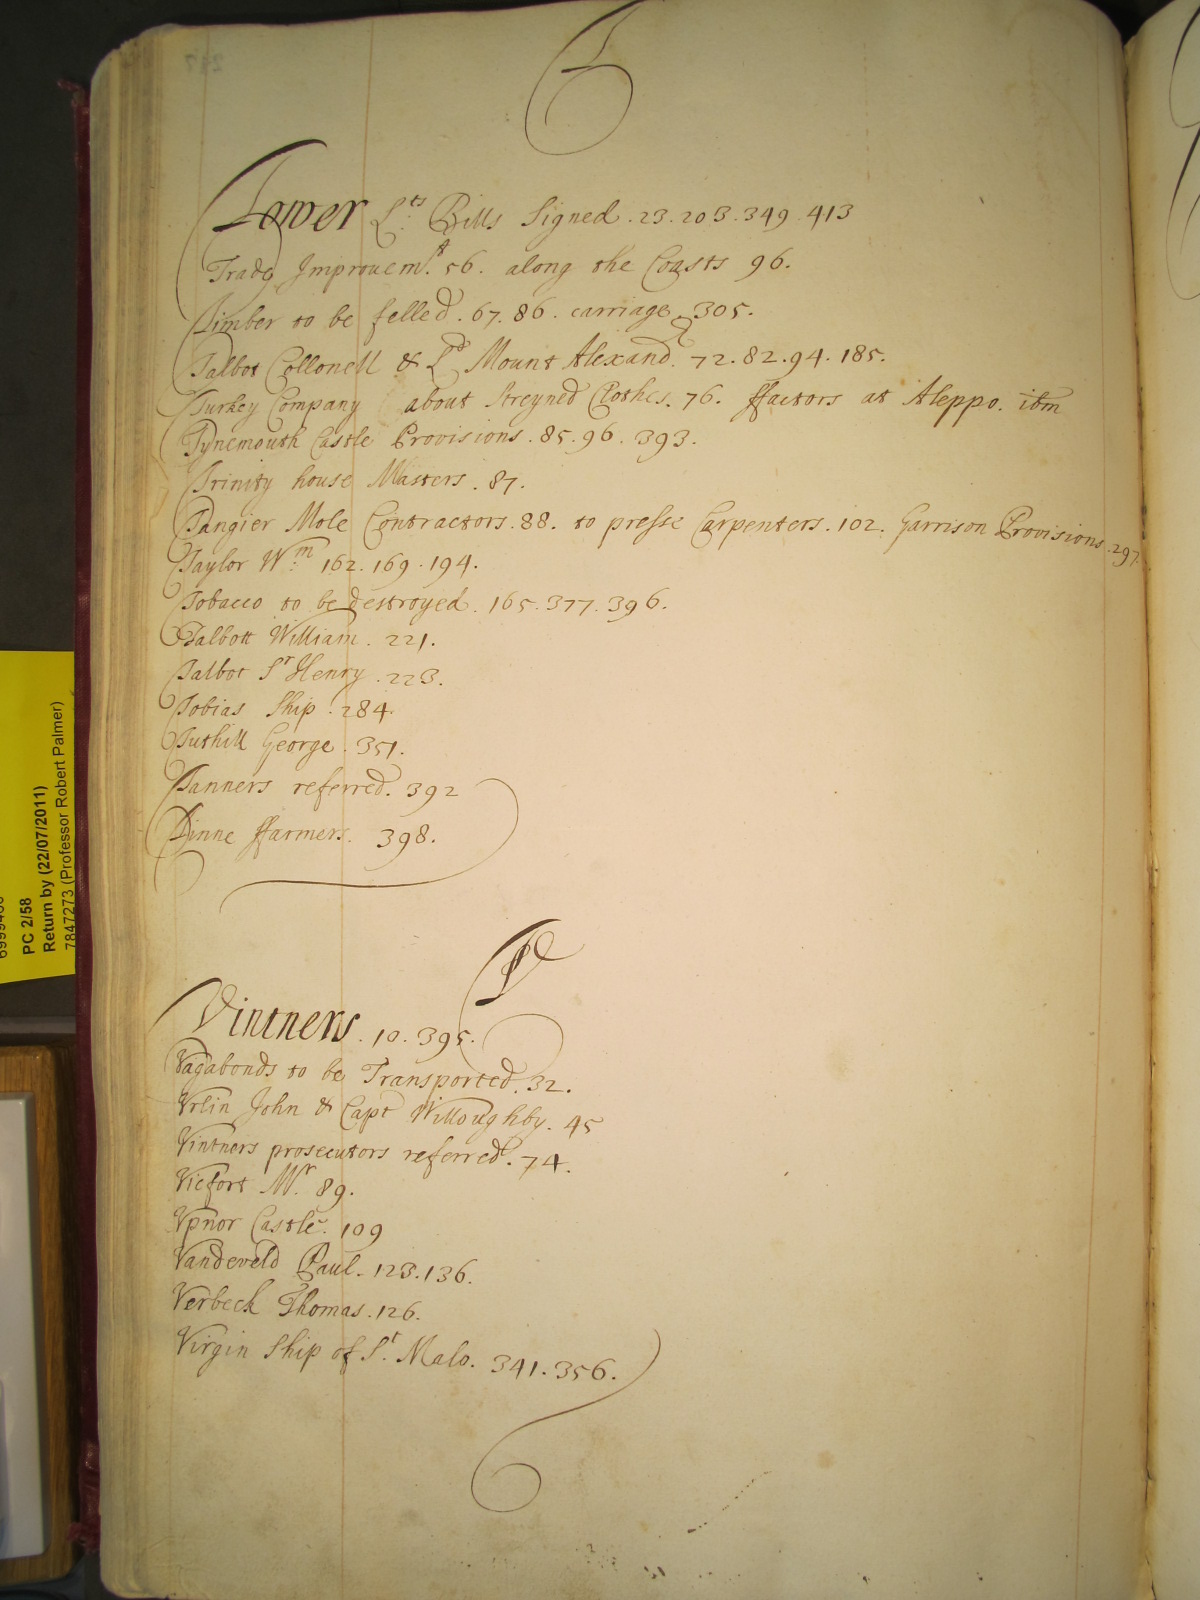 T
Tower Lts Bills Signed . 23. 203. 349. 413
Trade Improuemt. 56. along the Coasts 96.
Timber to be felled. 67. 86. carriage 305.
Talbot Collonell & Ld Mount Alexandr. 72. 82. 94. 185.
Turkey Company about streyned Clothes. 76. ffactors at Aleppo. ibm
Tynemouth Castle Provisions. 85. 96. 393.
Trinity house Masters. 87.
Tangier Mole Contractors. 88. to presse Carpenters. 102. Garrison Provisions. 297.
Taylor Wm. 162. 169. 194.
Tobacco to be destroyed. 165. 377. 396.
Talbott William. 221.
Talbot Sr Henry. 223.
Tobias Ship. 284.
Tuthill George. 351.
Tanners referred. 392
Tinne ffarmers. 398.
V
Vintners. 10. 395.
Vagabonds to be Transported. 32.
Vrlin John & Capt Willoughby. 45
Vintners prosecutors referred. 74.
Viefort Mr. 89.
Vpnor Castle. 109
Vandeveld Paul. 123. 136.
Verbeck Thomas. 126.
Virgin Ship of St. Malo. 341. 356.
PC 2/58
Return by (22/07/2011)
7847273 (Professor Robert Palmer)